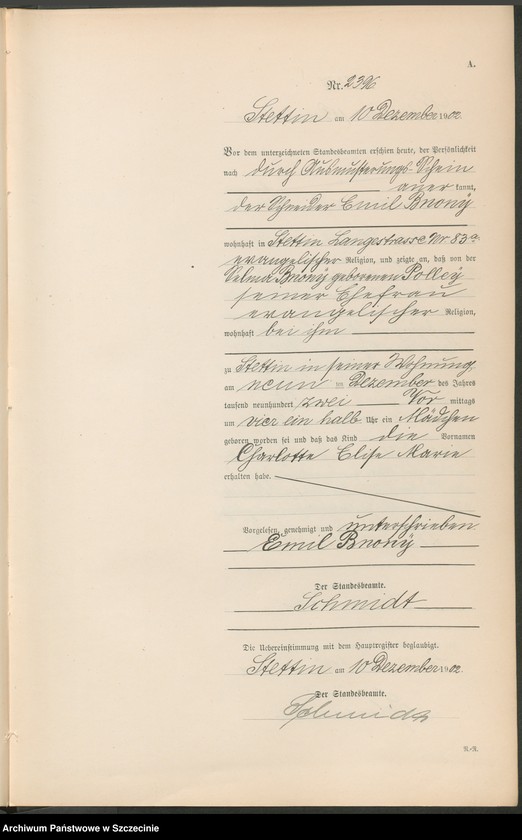 A.
Nr. 2396
Stettin am 10 Dezember 1902
Vor dem unterzeichneten Standesbeamten erschien heute, der Persönlichkeit
nach durch Ausmusterungs-Schein
aner kannt,
der Schneider Emil Bnonÿ
wohnhaft in Stettin Langestrasse Nr 83a
evangelischer Religion, und zeigte an, daß von der
Selma Bnonÿ geborenen Polley
seiner Ehefrau
evangelischer Religion,
wohnhaft bei ihm
zu Stettin in seiner Wohnung
am neun ten Dezember des Jahres
tausend neunhundert zwei Vor mittags
um vier ein halb Uhr ein Mädchen
geboren worden sei und daß das Kind die Vornamen
Charlotte Elise Marie
erhalten habe.
Vorgelesen, genehmigt und unterschrieben
Emil Bnonÿ
Der Standesbeamte.
Schmidt
Die Uebereinstimmung mit dem Hauptregister beglaubigt.
Stettin am 10 Dezember 1902
Der Standesbeamte.
Schmidt
R.-R.
Archiwum Państwowe w Szczecinie